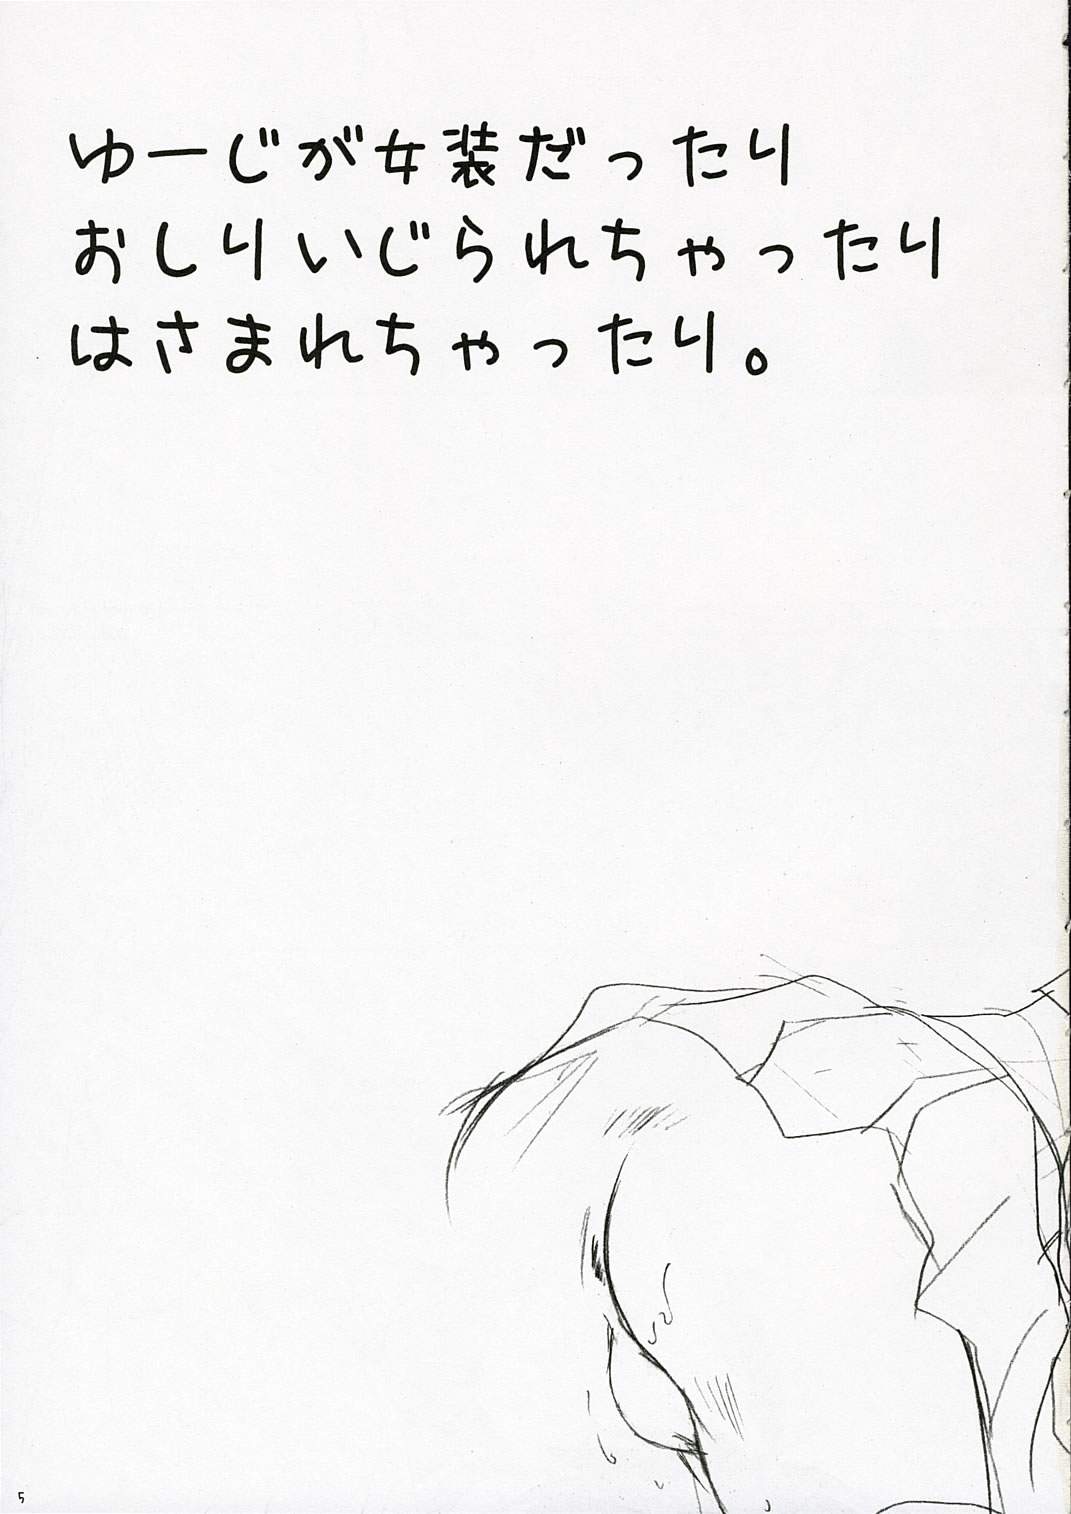 ゆーじが女装だったり
おしりいじられちゃったり
はさまれちゃったり。
5